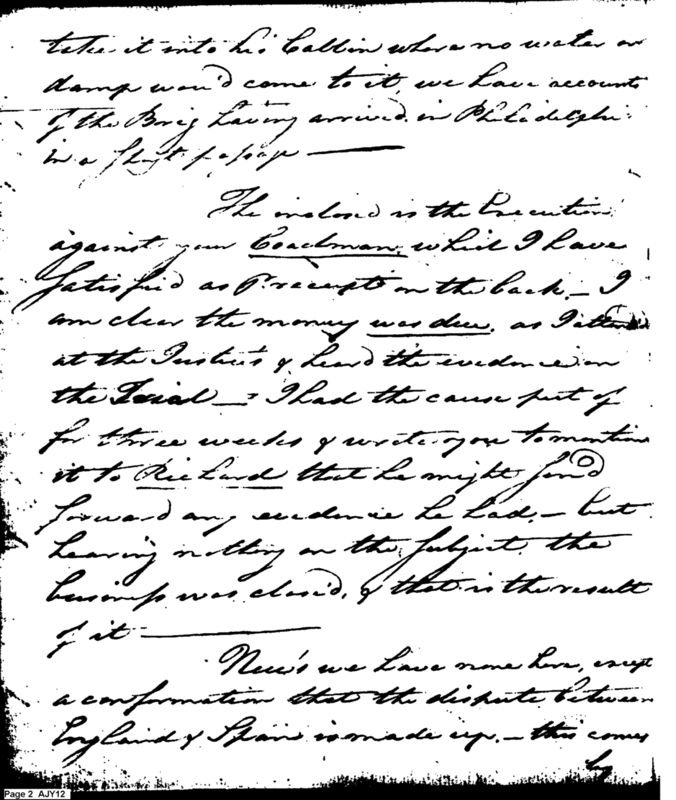 take it into his Cabbin where no water or
damp wou'd come to it, we have accounts
of the Brig having arrived in Philadelphi
in a short passage —
The inclosed is the Execution
against your Coachman, which I have
Satisfied as P receipt on the back, — I
am clear the money was due, as I atten
at the Justice's & heard the evidence on
the Trial — I had the cause put of
for three weeks & wrote you to mention
it to Richard that he might send
forward any evidence he had, — but
hearing nothing on the Subject, the
business was closed, & that is the result
of it —
New's we have none here, except
a conformation that the dispute between
England & Spain is made up, — this comes
by
Page 2 AJY12